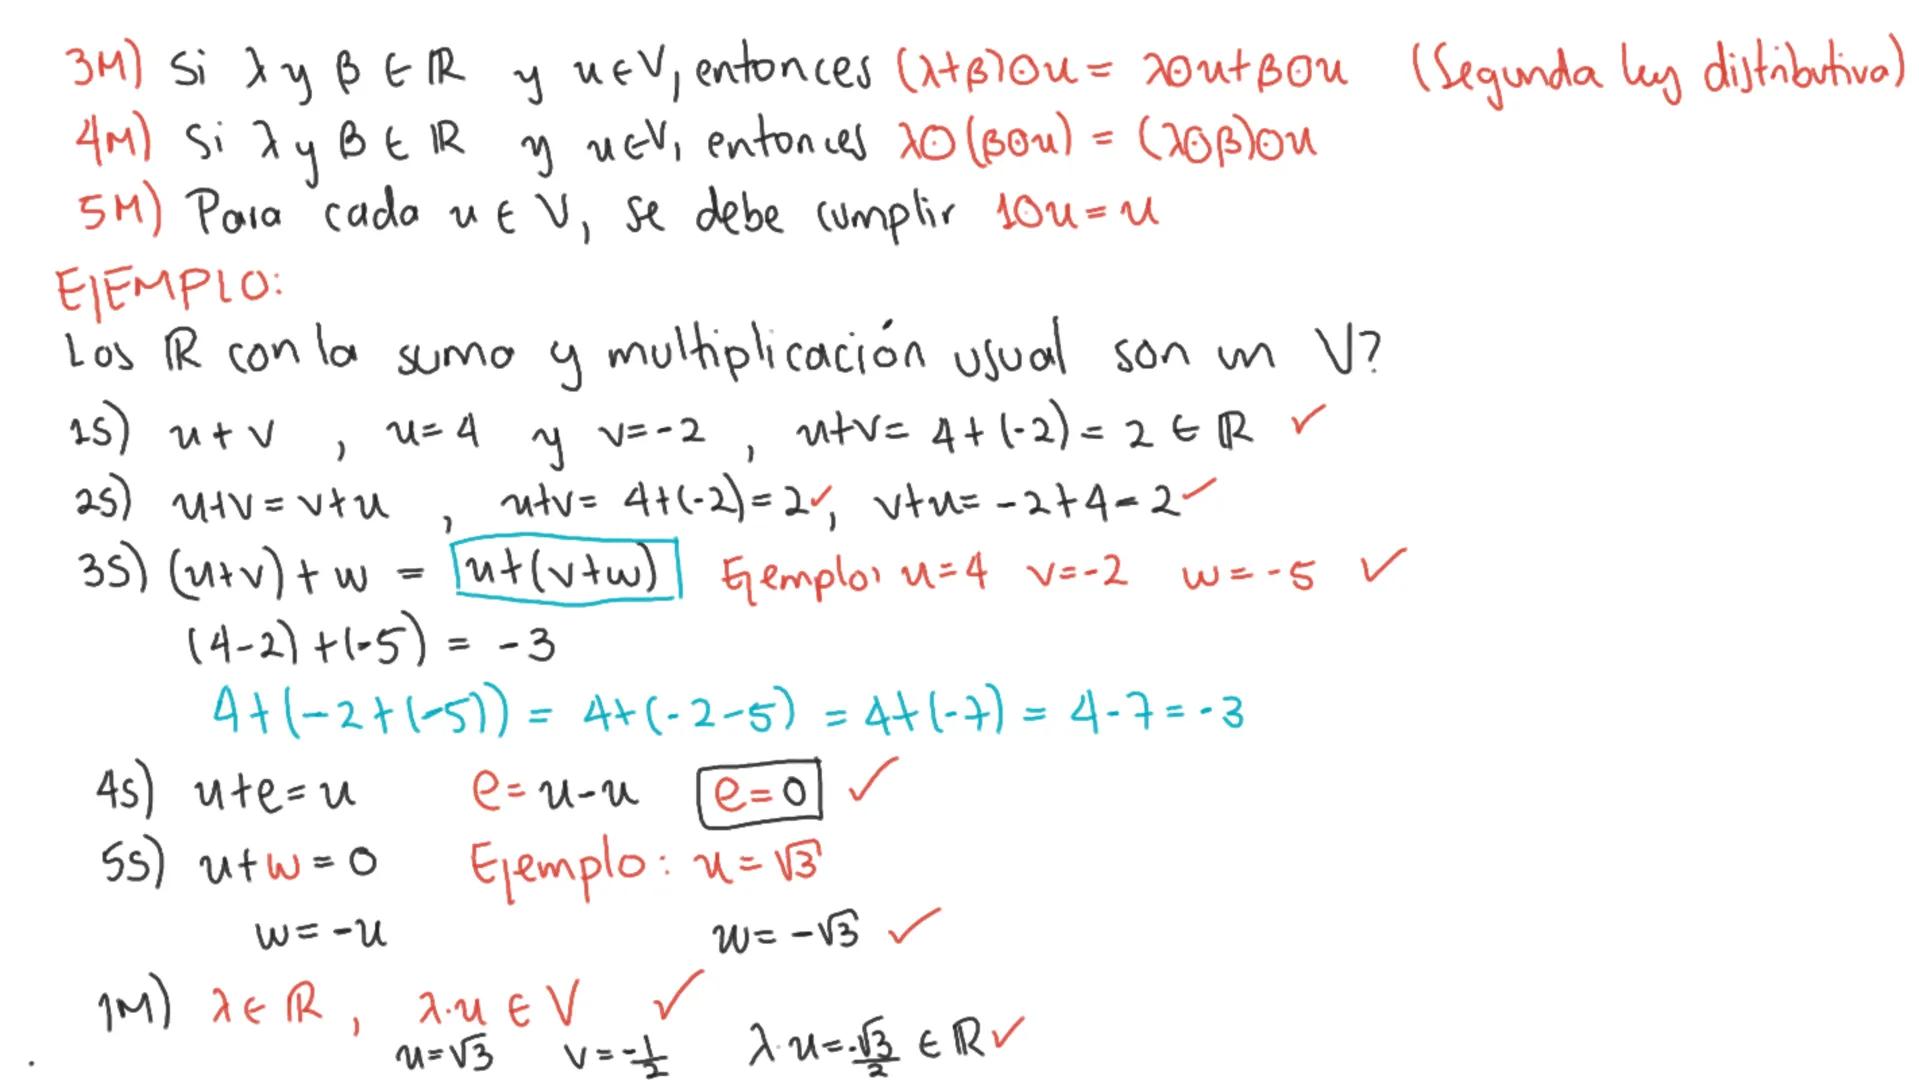 3M) Si λ y β ∈ ℝ y u∈V, entonces (λ+β)⊙u = λ⊙u+β⊙u (Segunda ley distributiva)
4M) Si λ y β ∈ ℝ y u∈V, entonces λ⊙(β⊙u) = (λ⊙β)⊙u
5M) Para cada u ∈ V, se debe cumplir 1⊙u=u
EJEMPLO:
Los ℝ con la suma y multiplicación usual son un V?
1S) u+v , u=4 y v=-2 , u+v= 4+(-2)= 2 ∈ ℝ ✓
2S) u+v=v+u , u+v= 4+(-2)=2✓, v+u= -2+4=2✓
3S) (u+v)+w = u+(v+w) Ejemplo: u=4 v=-2 w=-5 ✓
(4-2)+(-5) = -3
4+(-2+(-5)) = 4+(-2-5) = 4+(-7) = 4-7=-3
4S) u+e=u e=u-u e=0 ✓
5S) u+w=0 Ejemplo: u=√3
w=-u w=-√3 ✓
1M) λ∈ℝ, λ·u∈V ✓
u=√3 v=-1/2 λ·u=-√3/2 ∈ ℝ✓